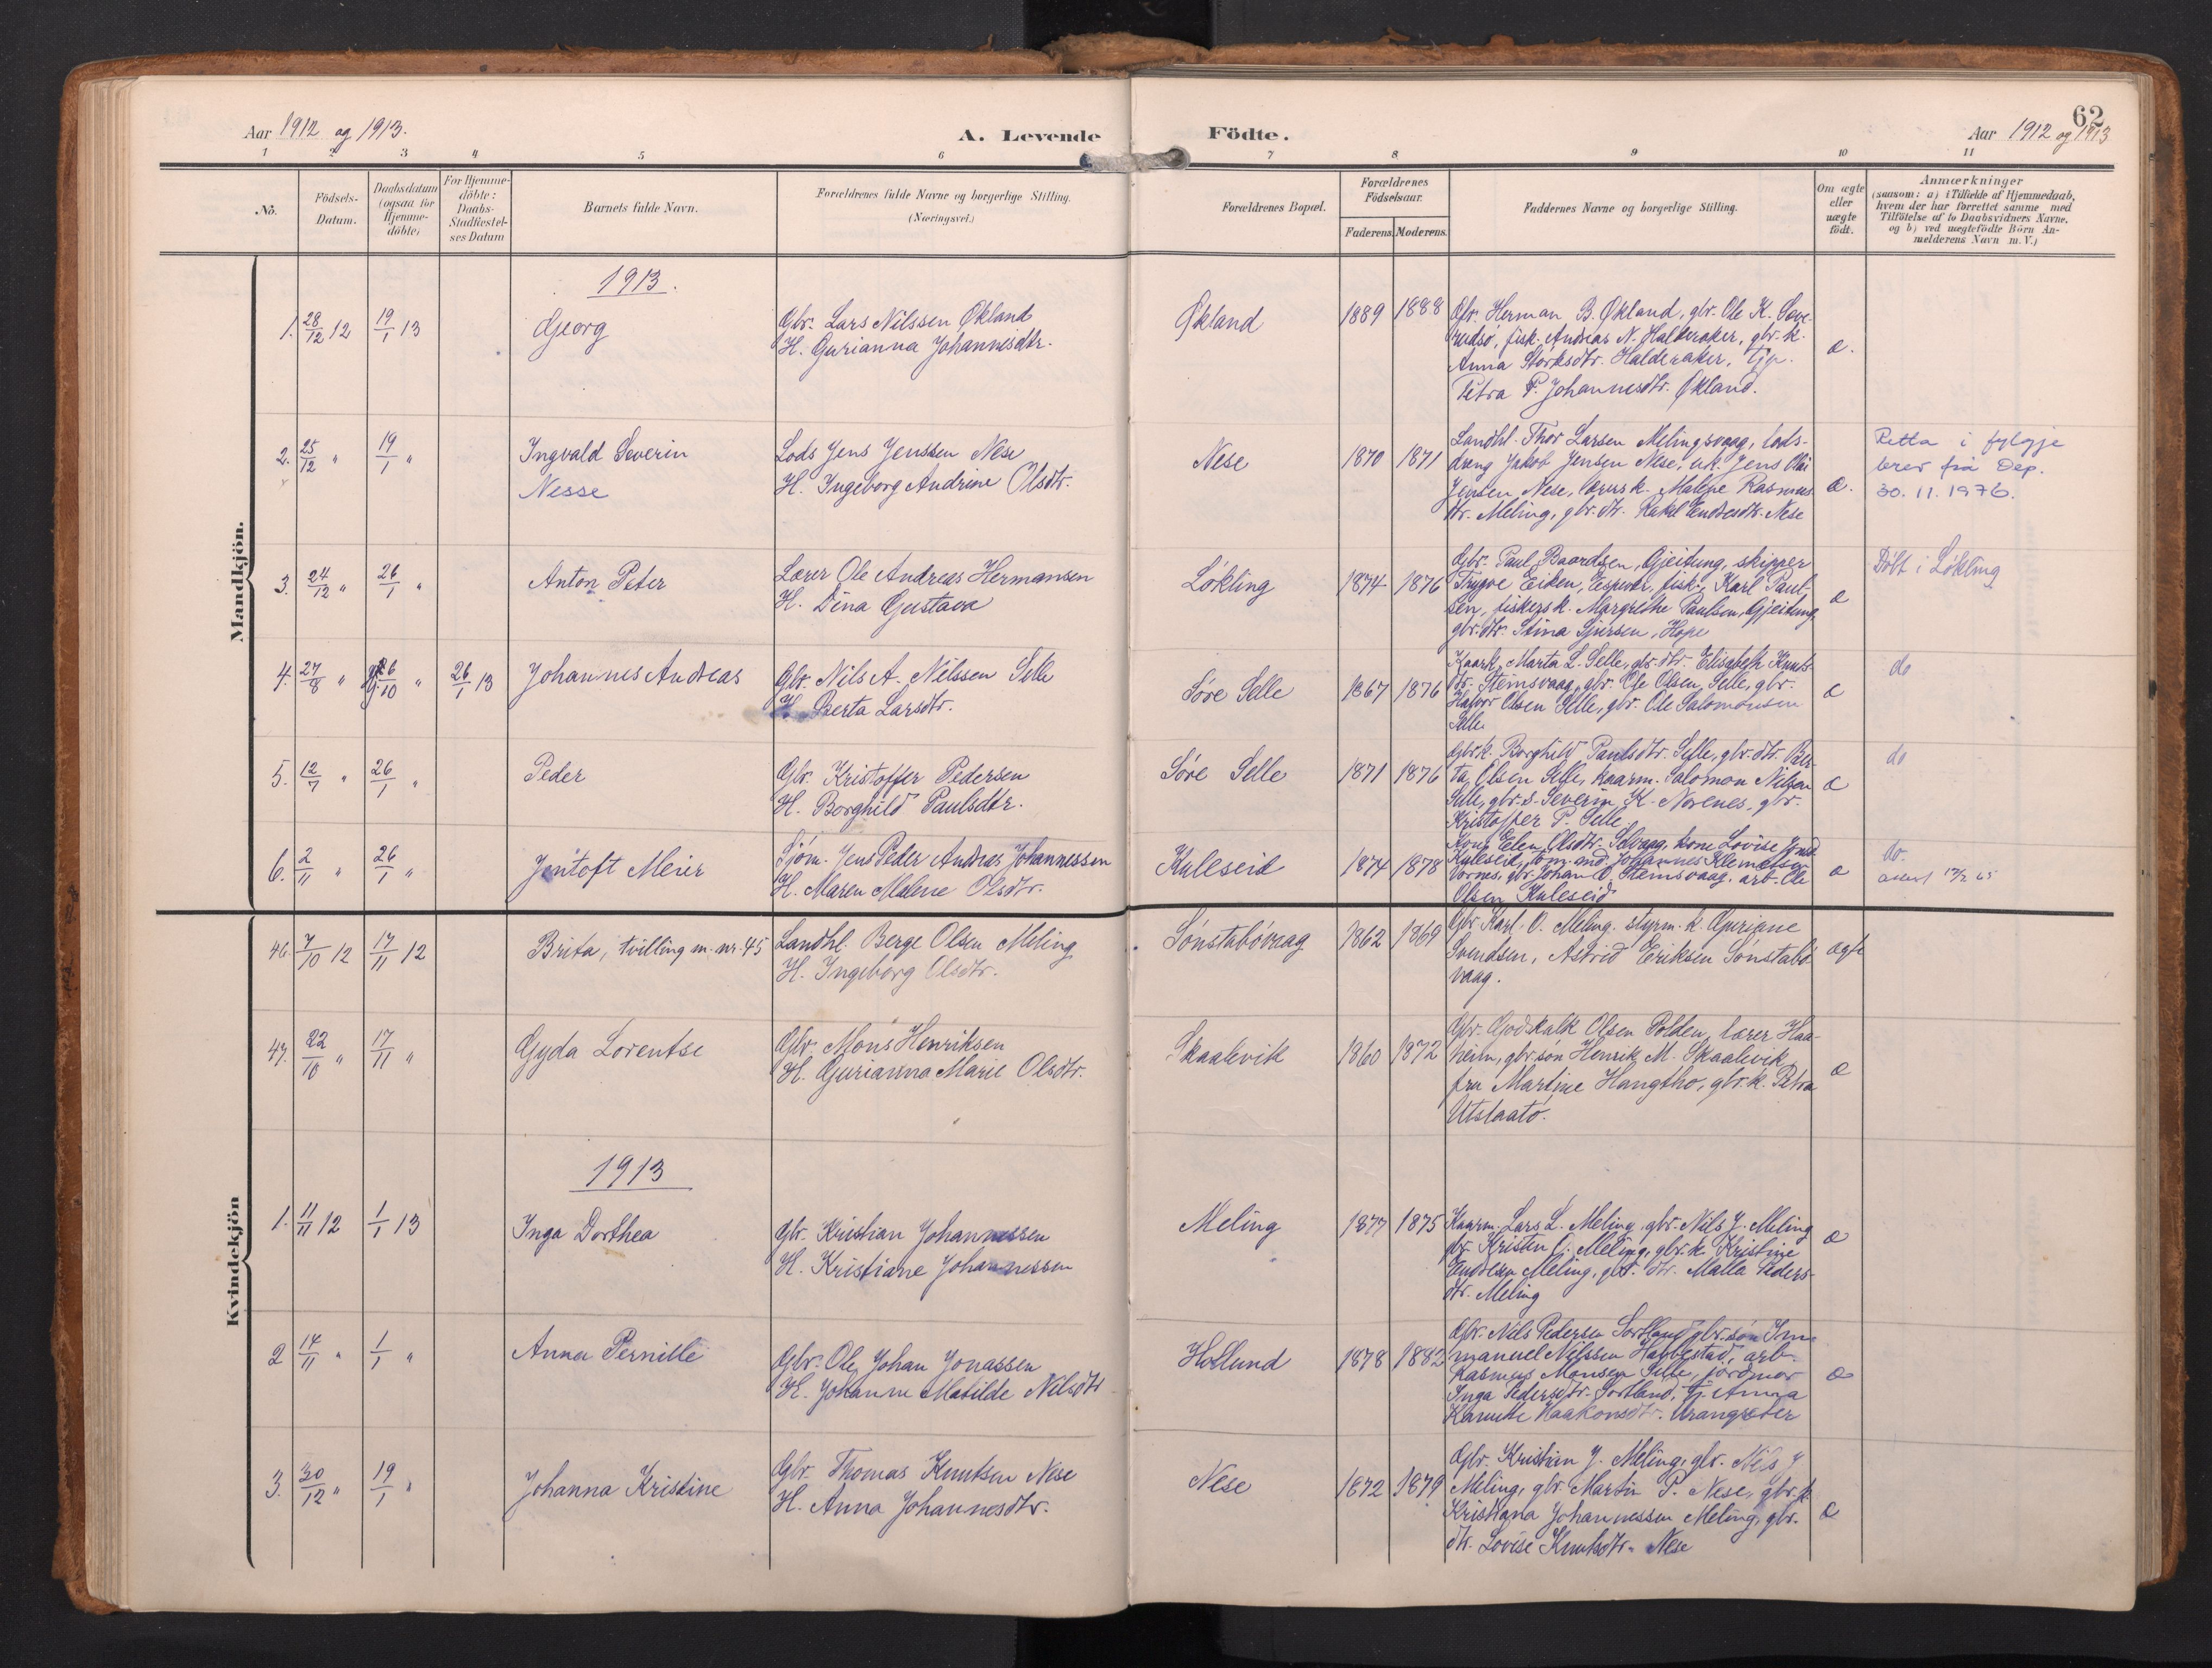 62
Aar 1912 og 1913.
A. Levende Födte.
Aar 1912 og 1913
1 2 3 4 5 6 7 8 9 10 11
No.
Födsels-
Datum.
Daabsdatum
(ogsaa for
Hjemme-
döbte)
For Hjemme-
döbte:
Daabs-
Stadfæstel-
ses Datum
Barnets fulde Navn.
Forældrenes fulde Navne og borgerlige Stilling.
(Næringsvei.)
Forældrenes Bopæl.
Forældrenes
Födselsaar.
Faderens. Moderens.
Faddernes Navne og borgerlige Stilling.
Om ægte
eller
uægte
födt.
Anmærkninger
(saasom: a) i Tilfælde af Hjemmedaab,
hvem der har forrettet samme med
Tilföielse af to Daabsvidners Navne,
og b) ved uægtefödte Börn An-
melderens Navn m. V.)
Mandkjön.
1913.
1. 28/12 12 19/1 13
Georg
Gbr. Lars Nilssen Økland
H. Gurianna Johannesdtr.
Økland
1889 1888
Gbr. Herman B. Økland, gbr. Ole K. Sove-
fisk. Andreas N. Halderaker, gbr. k.
Anna Størksdtr. Halderaker, tjp.
Petra P. Johannesdtr. Økland.
æ.
2. 25/12 " 19/1 "
Ingvald Severin
Nesse
Lods Jens Jenssen Nese
H. Ingeborg Andrine Olsdtr.
Nese
1870 1871
Landhl. Thor Larsen Melingsvaag, lods-
dreng Jakob Jensen Nese, u.k. Jens Olai
Jensen Nese, Malene Rasmus
dtr. Meling, gbr. dtr. Rakel Endresdtr. Nese
æ.
Retta i fylgje
brev frå Dep.
30. 11. 1976.
3. 24/12 " 26/1 "
Anton Peter
Lærer Ole Andreas Hermansen
H. Dina Gustava
Løkling
1874 1876
Gbr. Paul Baardsen, Gjeitung, skipper
Trygve Eiken, Espevær, fisk. Karl Paul-
sen, fiskersk. Margrethe Paulsen, Gjeitung,
gbr. dtr. Stina Sjursen, Hope
æ
Døbt i Løkling
4. 27/8 " 26/10 " 26/1 13
Johannes Andreas
Gbr. Nils A. Nilssen Selle
H. Berta Larsdtr.
Søre Selle
1867 1876
Kaark. Marta L. Selle, gbr. dtr. Elisabeth Knuts
dtr. Stemsvaag, gbr. Ole Olsen Selle, gbr.
Halvor Olsen Selle, gbr. Ole Salomonsen
Selle.
æ
do
5. 12/7 " 26/1 "
Peder
Gbr. Kristoffer Pedersen
H. Borghild Paulsdtr.
Søre Selle
1871 1876
Gbrk. Borghild Paulsdtr. Selle, gbr. dtr. Ber-
ta Olsen Selle, kaarm. Salomon Nilsen
Selle, gbr. s. Severin K. Norenes, gbr.
Kristoffer P. Selle.
æ
do
6. 2/11 " 26/1 "
Jentoft Meier
Sjøm. Jens Peder Andreas Johannessen
H. Maren Malene Olsdtr.
Kuleseid
1874 1878
Kone Elen Olsdtr. Selvaag, kone Lovise
Kuleseid, tøm. md. Johannes Klemetsen
Vornes, gbr. Johan O. Stemsvaag. arb. Ole
Olsen Kuleseid
æ
do.
Kvindekjön
46. 7/10 12 17/11 12
Brita, tvilling m. nr. 45
Landhl. Berge Olsen Meling
H. Ingeborg Olsdtr.
Sønstabøvaag
1862 1869
Gbr. Karl O. Meling. styrm. k. Guriane
Svendsen, Astrid Eriksen Sønstabø
vaag.
ægte
47. 22/10 " 17/11 "
Gyda Lorentse
Gbr. Mons Henriksen
H. Gurianna Marie Olsdtr.
Skaalevik
1860 1872
Gbr. Godskalk Olsen Polden, lærer Haa-
heim, gbr. søn Henrik M. Skaalevik,
fru Martine Hangtho, gbr. k. Petra
Utslaatø.
æ
1913
1. 11/11 12 1/1 13
Inga Dorthea
Gbr. Kristian Johannessen
H. Kristiane Johannessen
Meling
1877 1875
Kaarm. Lars L. Meling, gbr. Nils J. Meling
gbr. Kristen O. Meling, gbr. k. Kristine
Endresen Meling, gbr. dtr. Malla Peders-
dtr. Meling
æ
2 14/11 " 1/1 "
Anna Pernille
Gbr. Ole Johan Jonassen
H. Johanne Matilde Nilsdtr
Hollund
1878 1882
Gbr. Nils Pedersen Sortland gbr. søn Im-
manuel Nilssen Habbestad, arb.
Rasmus Monsen Selle, jordmor
Inga Pedersdtr. Sortland, tj. Anna
Kamille Haakonsdtr. Urangsæter
æ
3. 30/12 " 19/1 "
Johanna Kristine
Gbr. Thomas Knutsen Nese
H. Anna Johannesdtr.
Nese
1872 1879
Gbr. Kristian J. Meling, gbr. Nils J
Meling, gbr. Martin P. Nese, gbr. k.
Kristiana Johannessen Meling, gbr.
dtr. Lovise Knutsdtr. Nese
æ